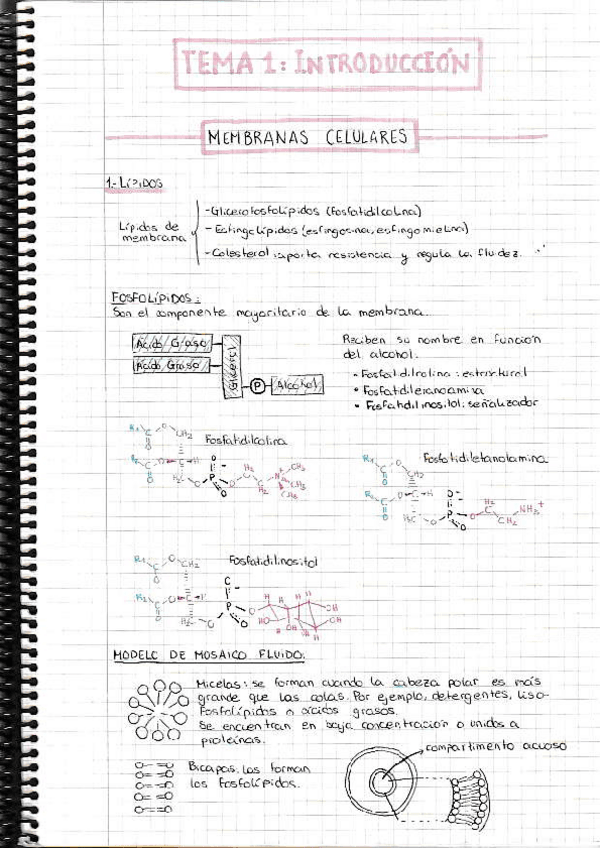 TEMA 1: INTRODUCCIÓN
MEMBRANAS CELULARES
1.- LÍPIDOS
Lípidos de
membrana
- Glicerofosfolípidos (fosfatidilcolina)
- Esfingolípidos (esfingosina, esfingomielina)
- Colesterol: aporta resistencia y regula la fluidez.
FOSFOLÍPIDOS:
Son el componente mayoritario de la membrana.
Ácido Graso
Ácido Graso
Glicerol
P
Alcohol
Reciben su nombre en función
del alcohol.
• Fosfatidilcolina: estructural
• Fosfatidiletanoamina
• Fosfatidilinositol: señalizador
Fosfatidilcolina
Fosfatidiletanolamina
Fosfatidilinositol
MODELO DE MOSAICO FLUIDO.
Micelas: se forman cuando la cabeza polar es más
grande que las colas. Por ejemplo, detergentes, liso-
fosfolípidos o ácidos grasos.
Se encuentran en baja concentración o unidos a
proteínas.
compartimento acuoso
Bicapas: las forman
los fosfolípidos.